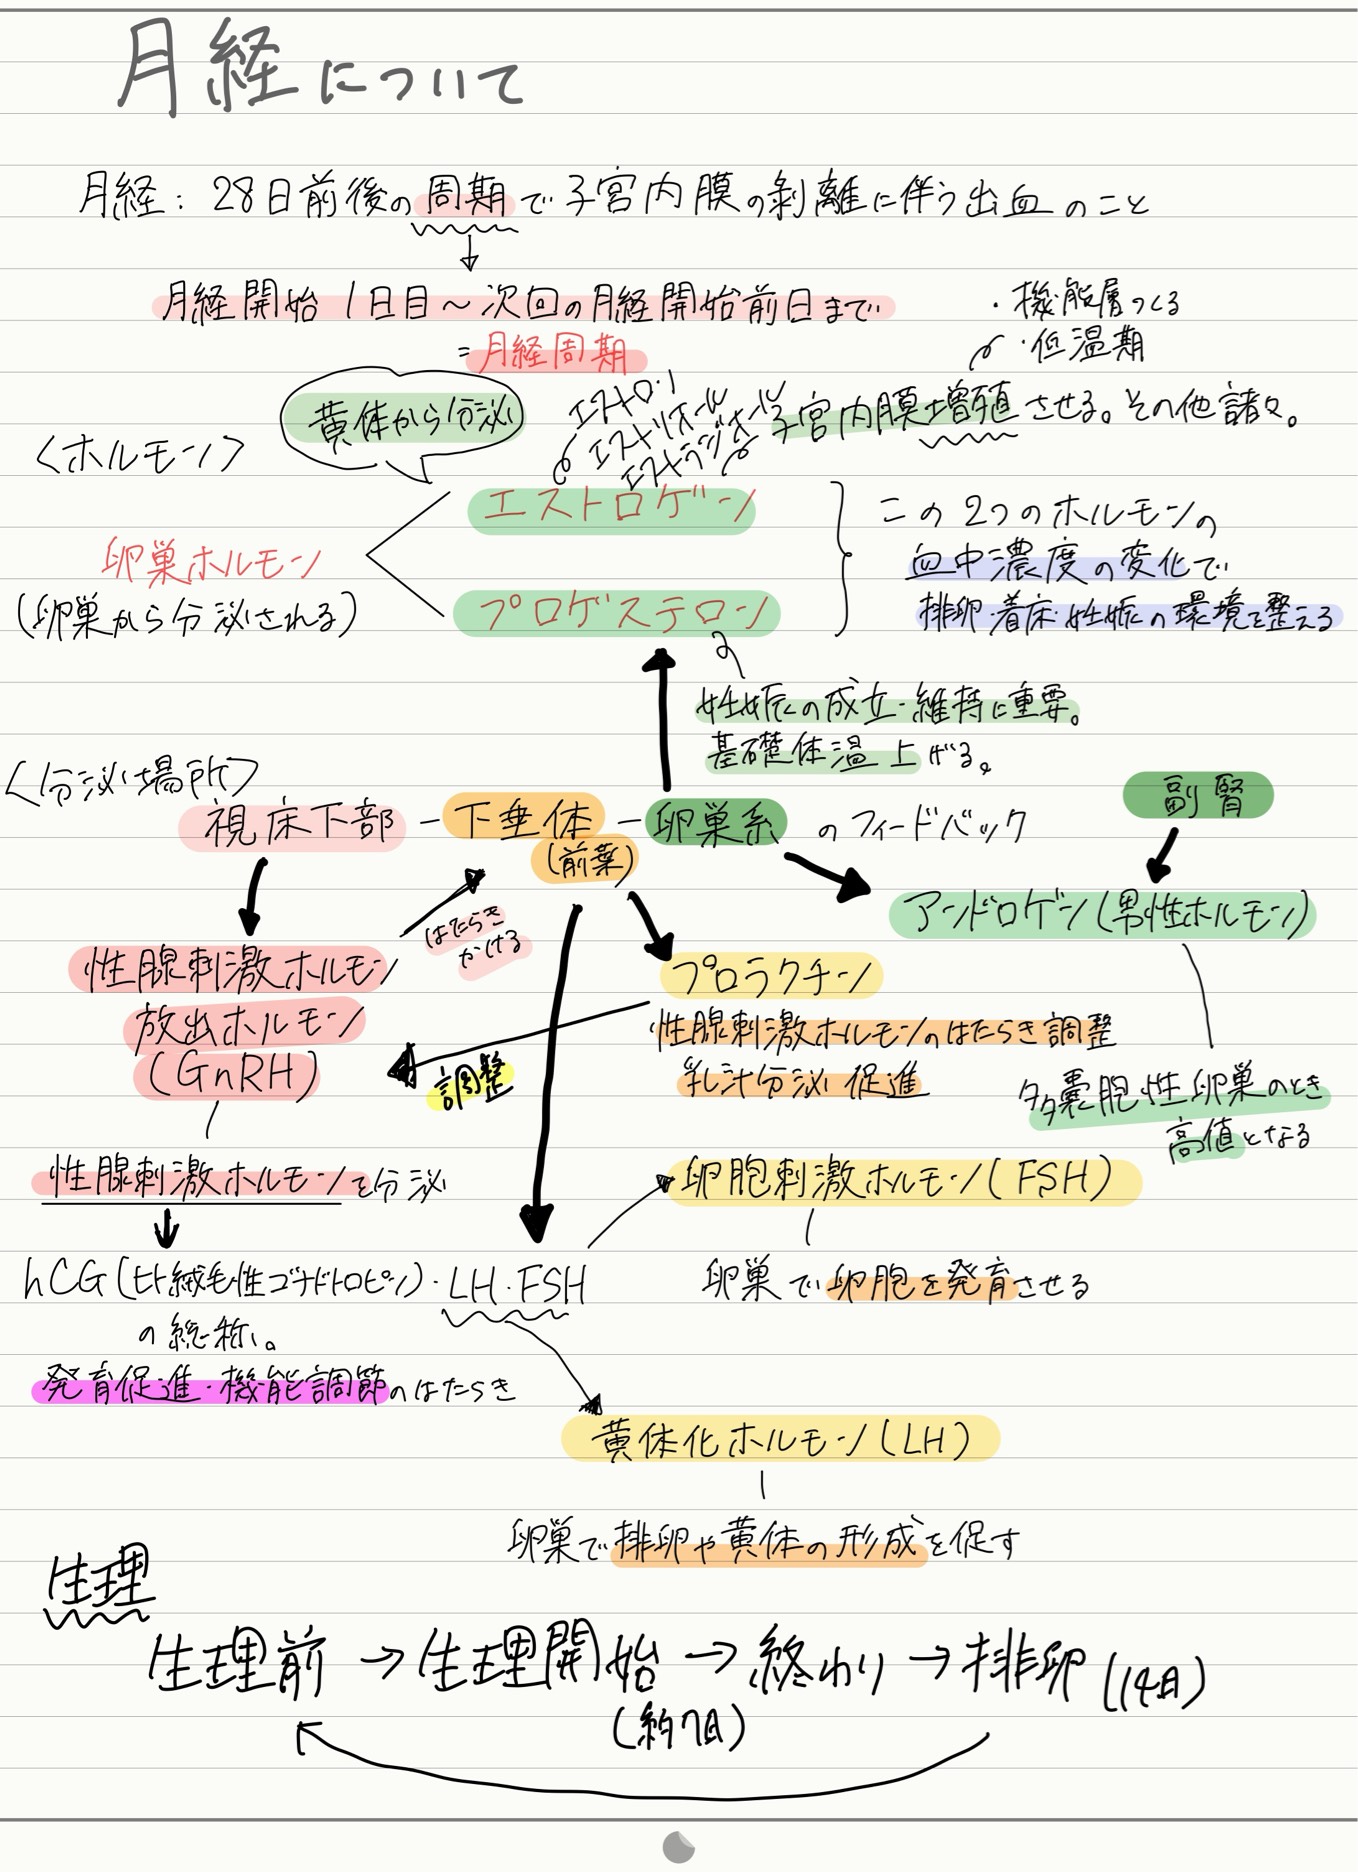 月経について
月経: 28日前後の周期で子宮内膜の剥離に伴う出血のこと
月経開始1日目～次回の月経開始前日まで
=月経周期
・機能層つくる
・低温期
黄体から分泌
エストロン
エストリオール
エストラジオール
子宮内膜増殖させる。その他諸々。
〈ホルモン〉
エストロゲン
卵巣ホルモン
(卵巣から分泌される)
プロゲステロン
この2つのホルモンの
血中濃度の変化で
排卵・着床・妊娠の環境を整える
妊娠の成立・維持に重要。
基礎体温上げる。
〈分泌場所〉
視床下部-下垂体-卵巣系のフィードバック
(前葉)
副腎
アンドロゲン(男性ホルモン)
はたらき
かける
性腺刺激ホルモン
放出ホルモン
(GnRH)
プロラクチン
性腺刺激ホルモンのはたらき調整
乳汁分泌促進
調整
多嚢胞性卵巣のとき
高値となる
性腺刺激ホルモンを分泌
卵胞刺激ホルモン(FSH)
卵巣で卵胞を発育させる
hCG(ヒト絨毛性ゴナドトロピン)・LH・FSH
の総称。
発育促進・機能調節のはたらき
黄体化ホルモン(LH)
卵巣で排卵や黄体の形成を促す
生理
生理前→生理開始→終わり→排卵(14日)
(約7日)